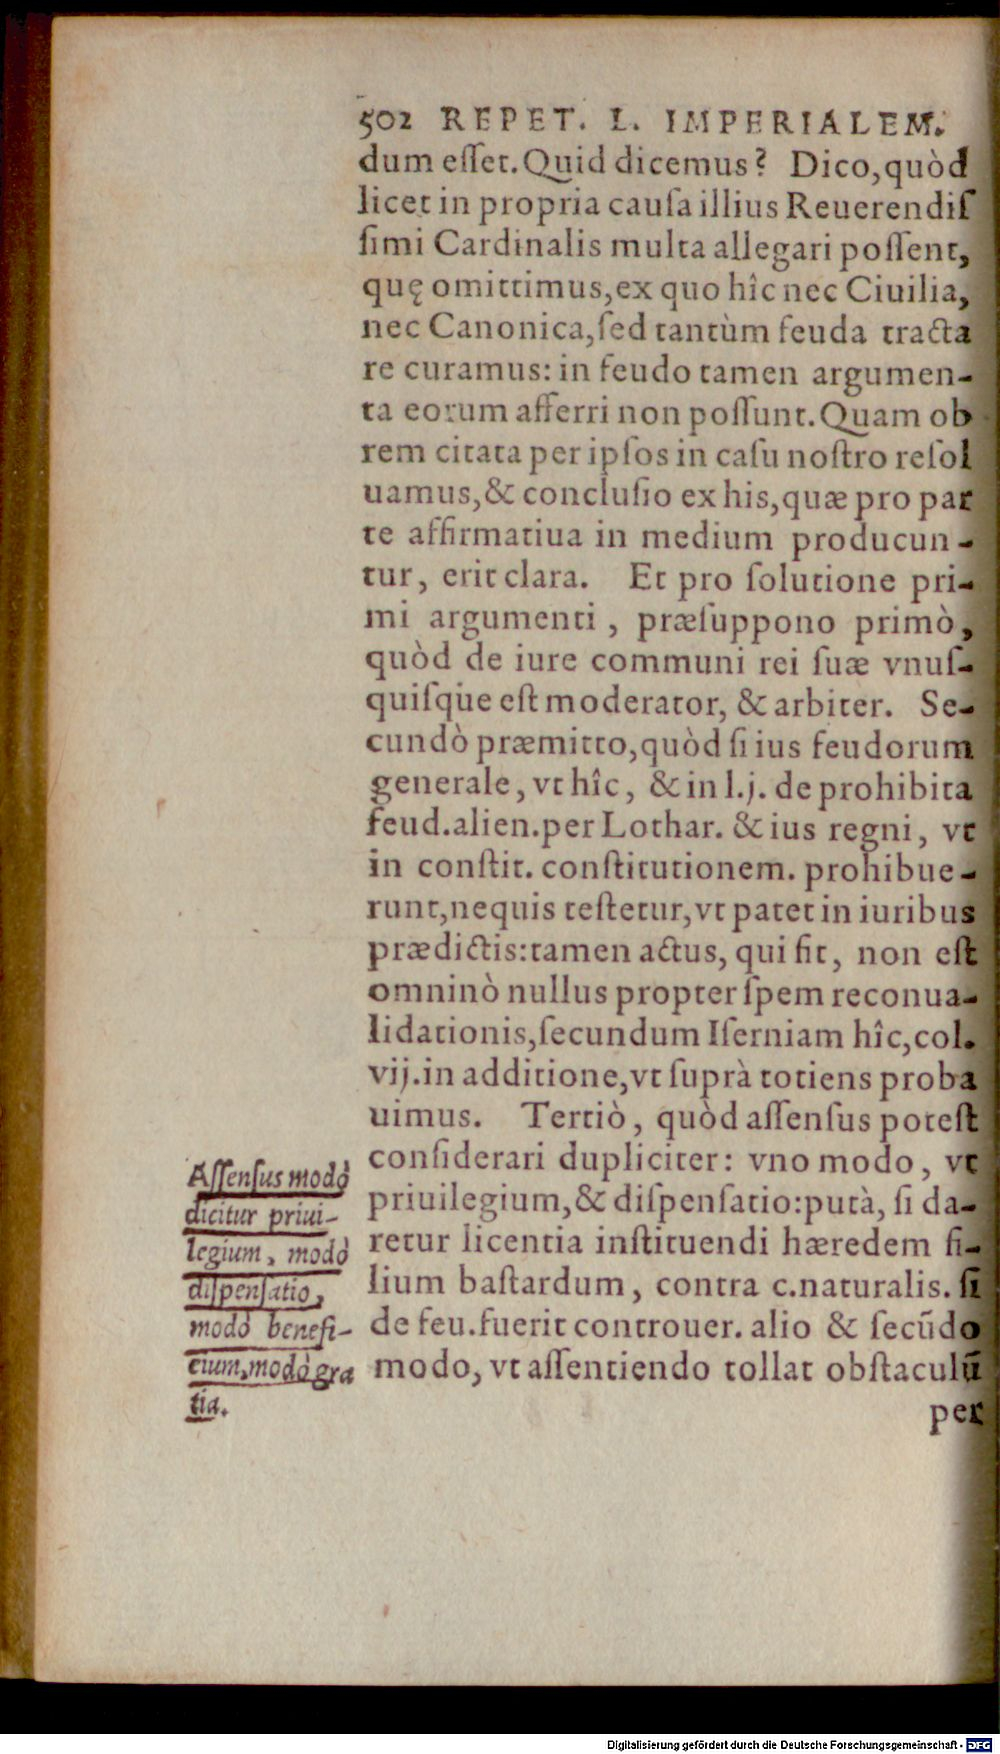 502 REPET. L. IMPERIALEM.
dum eſſet. Quid dicemus? Dico, quòd
licet in propria cauſa illius Reuerendiſ
ſimi Cardinalis multa allegari poſſent,
quę omittimus, ex quo hîc nec Ciuilia,
nec Canonica, ſed tantùm feuda tracta
re curamus: in feudo tamen argumen-
ta eorum afferri non poſſunt. Quam ob
rem citata per ipſos in caſu noſtro reſol
uamus, & concluſio ex his, quæ pro par
te affirmatiua in medium producun-
tur, erit clara. Et pro ſolutione pri-
mi argumenti, præſuppono primò,
quòd de iure communi rei ſuæ vnuſ-
quiſque eſt moderator, & arbiter. Se-
cundò præmitto, quòd ſi ius feudorum
generale, vt hîc, & in l.j. de prohibita
feud. alien. per Lothar. & ius regni, vt
in conſtit. conſtitutionem. prohibue-
runt, nequis teſtetur, vt patet in iuribus
prædictis: tamen actus, qui fit, non eſt
omninò nullus propter ſpem reconua-
lidationis, ſecundum Iſerniam hîc, col.
vij. in additione, vt ſuprà totiens proba
uimus. Tertiò, quòd aſſenſus poteſt
conſiderari dupliciter: vno modo, vt
priuilegium, & diſpenſatio: putà, ſi da-
retur licentia inſtituendi hæredem fi-
lium baſtardum, contra c. naturalis. ſi
de feu. fuerit controuer. alio & ſecũdo
modo, vt aſſentiendo tollat obſtaculũ
per
Aſſenſus modò
dicitur priui-
legium, modò
diſpenſatio,
modò benefi-
cium, modò gra
tia.
Digitalisierung gefördert durch die Deutsche Forschungsgemeinschaft - DFG